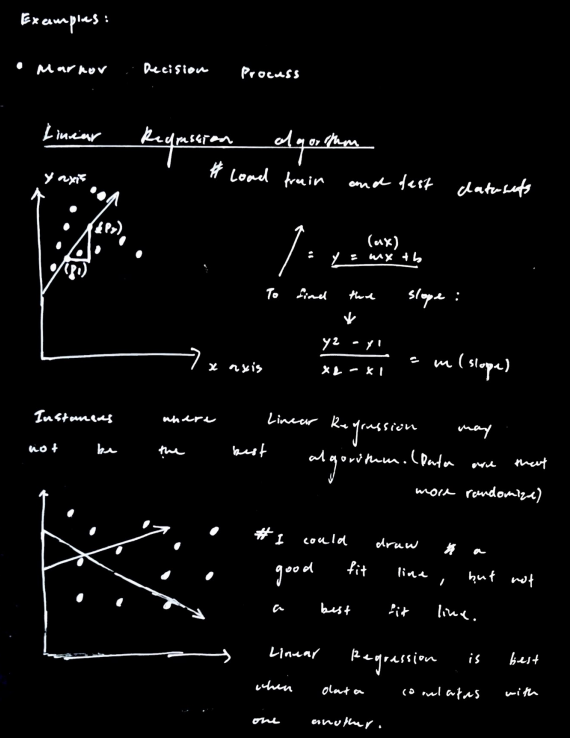 Examples:
• Markov Decision Process
Linear Regression algorithm
y axis
# Load train and test datasets
(P2)
(P1)
(ax)
= y = mx + b
To find the slope:
y2 - y1
x2 - x1
= m (slope)
x axis
Instances where Linear Regression may
not be the best algorithm. (Data are that
more randomize)
# I could draw a
good fit line, but not
a best fit line.
Linear Regression is best
when data correlates with
one another.